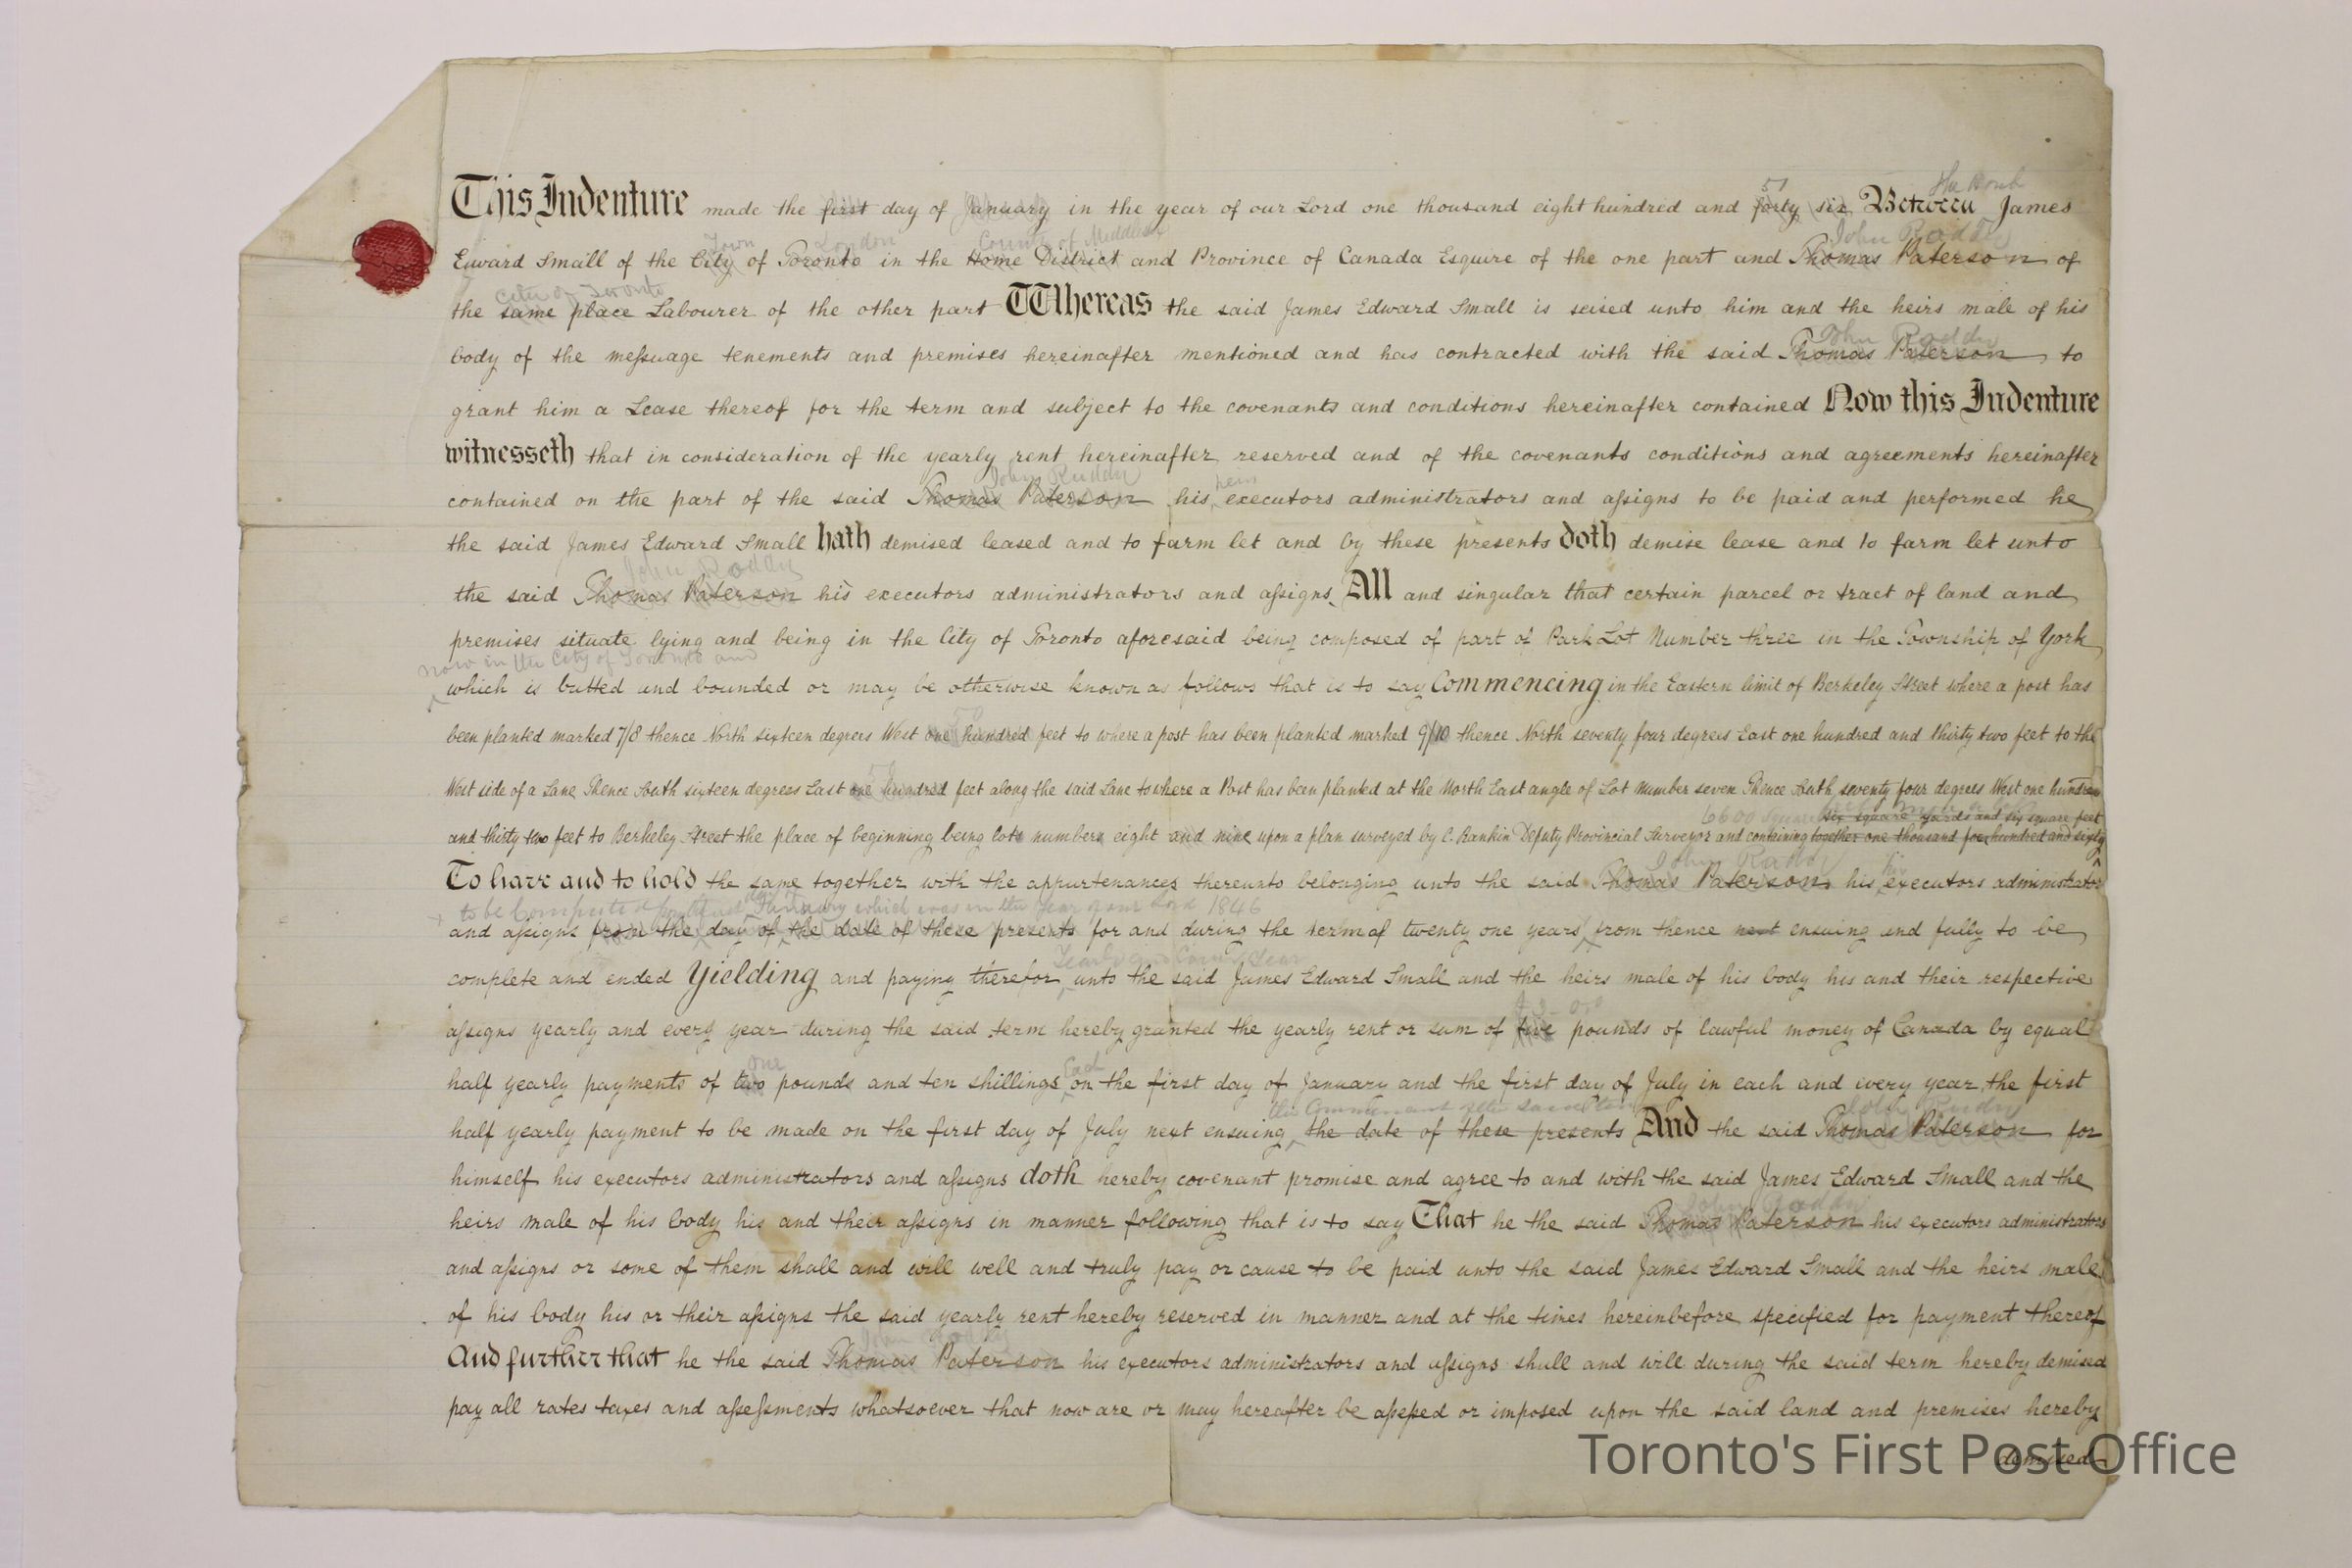 51 The Honb
This Indenture made the first day of January in the year of our Lord one thousand eight hundred and forty six Between James
Town London County of Middlesex John Roddy
Edward Small of the City of Toronto in the Home District and Province of Canada Esquire of the one part and Thomas Paterson of
City of Toronto
the same place Labourer of the other part Whereas the said James Edward Small is seised unto him and the heirs male of his
John Roddy
body of the meſsuage tenements and premises hereinafter mentioned and has contracted with the said Thomas Paterson to
grant him a Lease thereof for the term and subject to the covenants and conditions hereinafter contained Now this Indenture
witnesseth that in consideration of the yearly rent hereinafter reserved and of the covenants conditions and agreements hereinafter
John Ruddy heirs
contained on the part of the said Thomas Paterson his executors administrators and aſsigns to be paid and performed he
the said James Edward Small hath demised leased and to farm let and by these presents doth demise lease and to farm let unto
John Roddy
the said Thomas Paterson his executors administrators and aſsigns All and singular that certain parcel or tract of land and
premises situate lying and being in the City of Toronto aforesaid being composed of part of Park Lot Number three in the Township of York
now in the City of Toronto and
which is butted and bounded or may be otherwise known as follows that is to say Commencing in the Eastern limit of Berkeley Street where a post has
50
been planted marked 7/8 thence North sixteen degrees West one hundred feet to where a post has been planted marked 9/10 thence North seventy four degrees East one hundred and thirty two feet to the
West side of a Lane Thence South sixteen degrees East one hundred feet along the said Lane to where a Post has been planted at the North East angle of Lot Number seven Thence South seventy four degrees West one hundred
6600 square six square yards and six square feet
and thirty two feet to Berkeley Street the place of beginning being lots numbers eight and nine upon a plan surveyed by C. Rankin Deputy Provincial Surveyor and containing together one thousand four hundred and sixty
John Roddy
To have and to hold the same together with the appurtenances thereunto belonging unto the said Thomas Paterson his executors administrators
to be computed from the first day of January which was in the Year of our Lord 1846
and aſsigns from the day of the date of these presents for and during the term of twenty one years from thence next ensuing and fully to be
Yearly and Every Year
complete and ended Yielding and paying therefor unto the said James Edward Small and the heirs male of his body his and their respective
aſsigns yearly and every year during the said term hereby granted the yearly rent or sum of five pounds of lawful money of Canada by equal
one Each
half yearly payments of two pounds and ten shillings on the first day of January and the first day of July in each and every year the first
John Ruddy
half yearly payment to be made on the first day of July next ensuing the date of these presents And the said Thomas Paterson for
himself his executors administrators and aſsigns doth hereby covenant promise and agree to and with the said James Edward Small and the
John Roddy
heirs male of his body his and their aſsigns in manner following that is to say That he the said Thomas Paterson his executors administrators
and aſsigns or some of them shall and will well and truly pay or cause to be paid unto the said James Edward Small and the heirs male
of his body his or their aſsigns the said yearly rent hereby reserved in manner and at the times hereinbefore specified for payment thereof
John Roddy
And further that he the said Thomas Paterson his executors administrators and aſsigns shall and will during the said term hereby demised
pay all rates taxes and aſseſsments whatsoever that now are or may hereafter be aſseſsed or imposed upon the said land and premises hereby
demised
Toronto's First Post Office